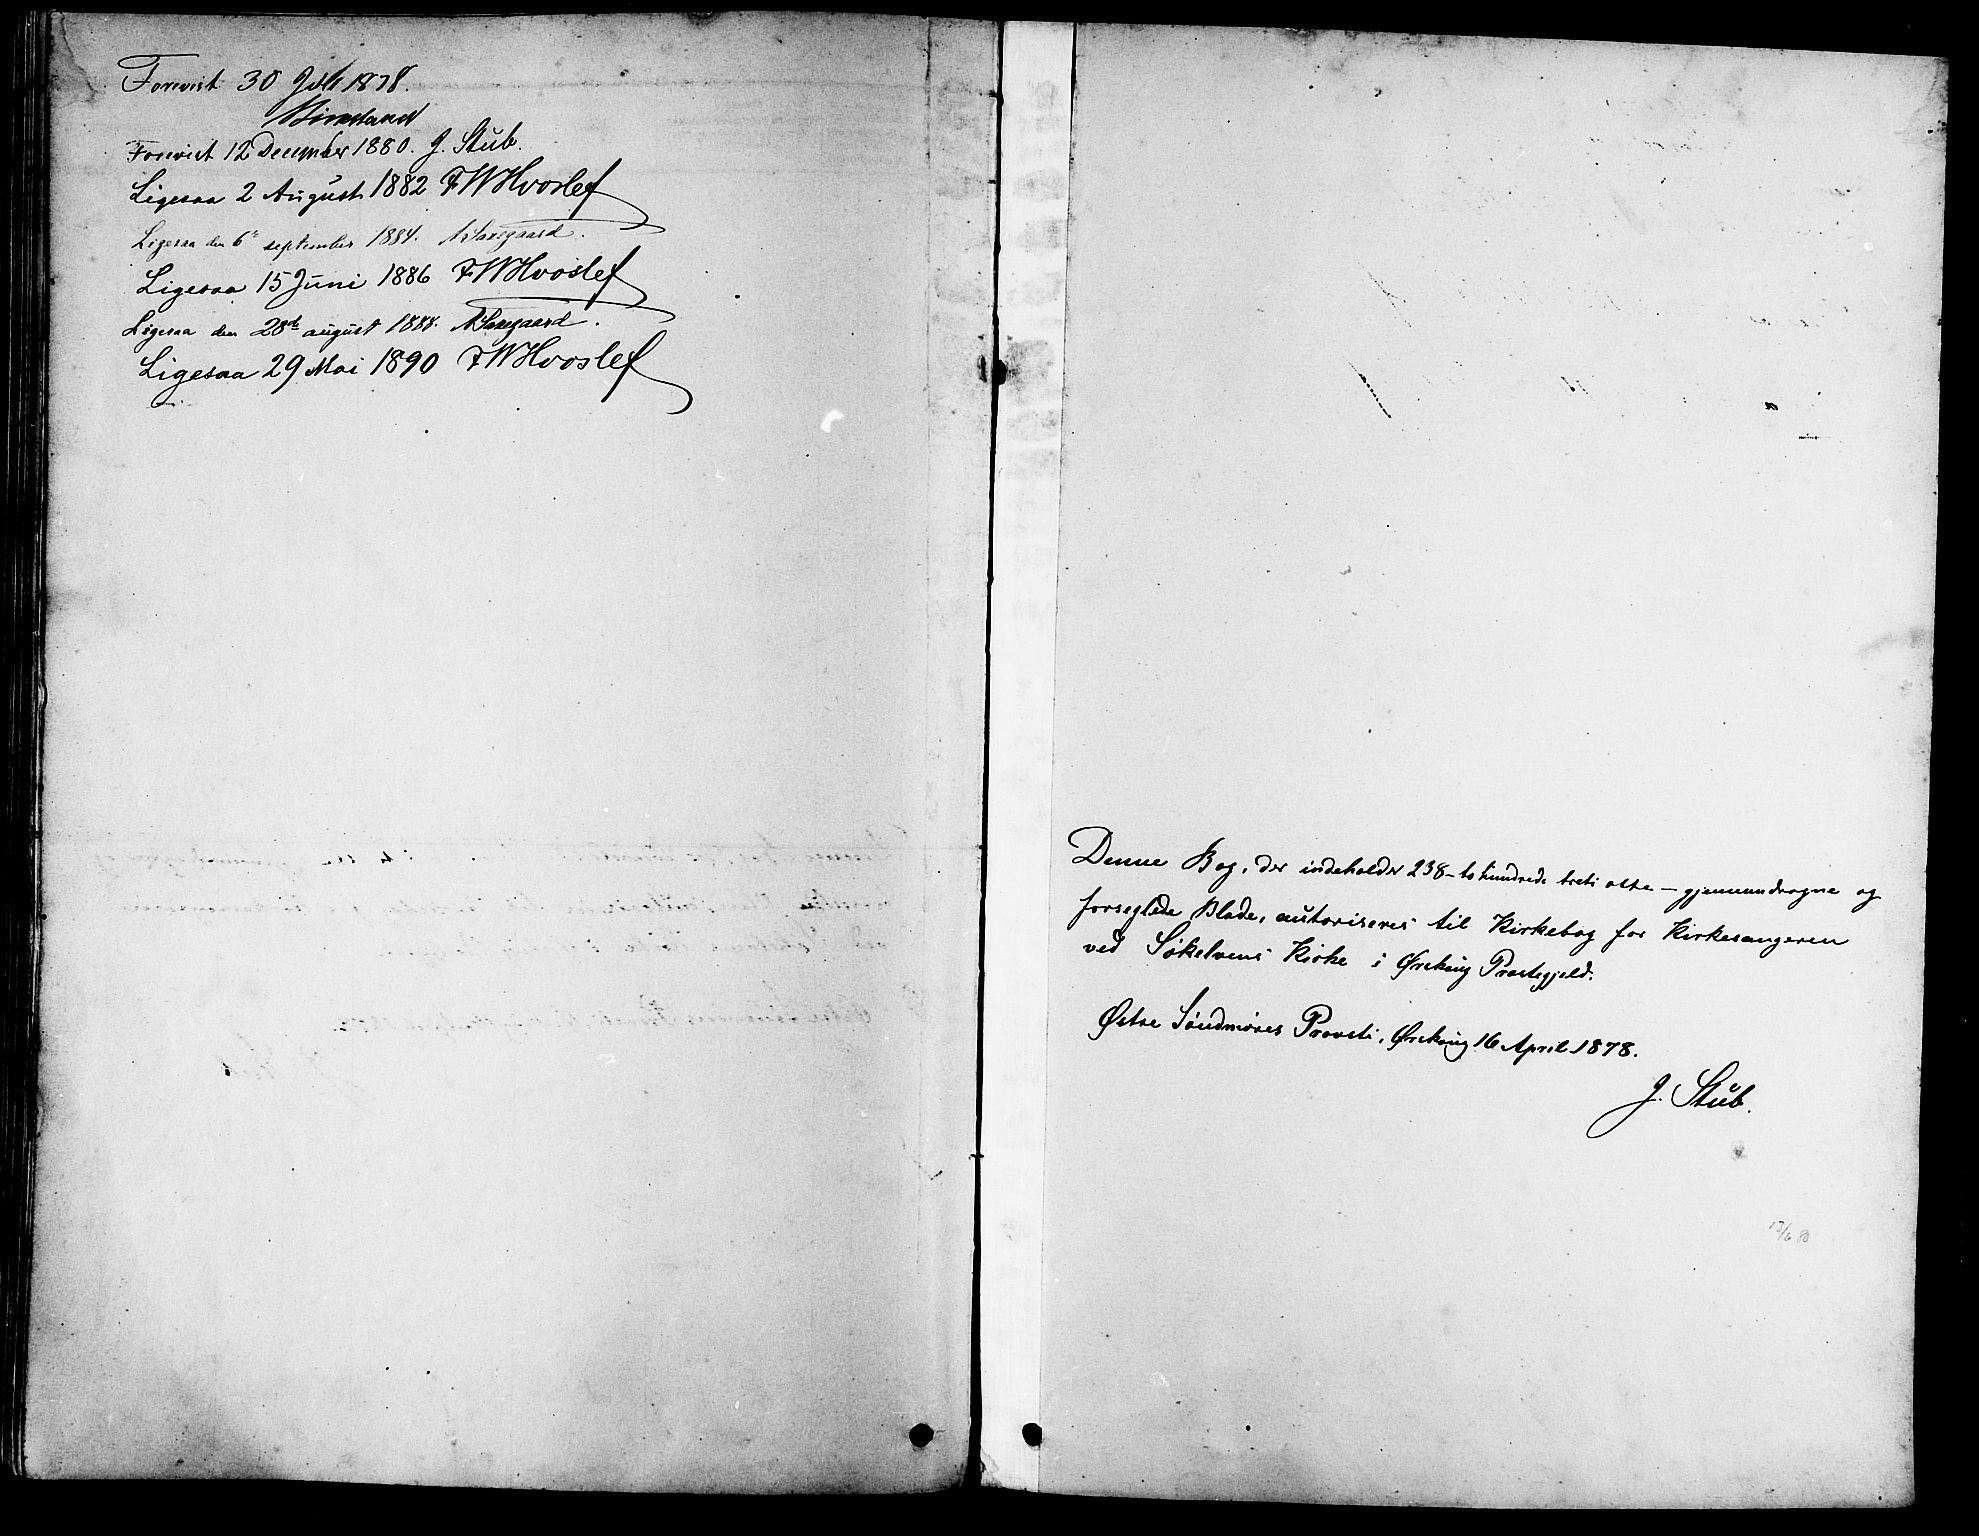 Forevist 30 Juli 1878.
Forevist 12 December 1880. J. Stub.
Ligesaa 2 August 1882 FWHvoslef
Ligesaa den 6te september 1884. Saxegaard.
Ligesaa 15 Juni 1886 FWHvoslef
Ligesaa den 28de august 1888. Saxegaard.
Ligesaa 29 Mai 1890 FWHvoslef
Denne Bog, der indeholder 238 - to hundrede treti otte - gjennemdragne og
forseglede Blade, autoriseres til Kirkebog for Kirkesangeren
ved Søkelvens Kirke i Ørskoug Præstegjeld.
Østre Søndmøres Provsti, Ørskoug 16 April 1878.
J. Stub.
13/6 80